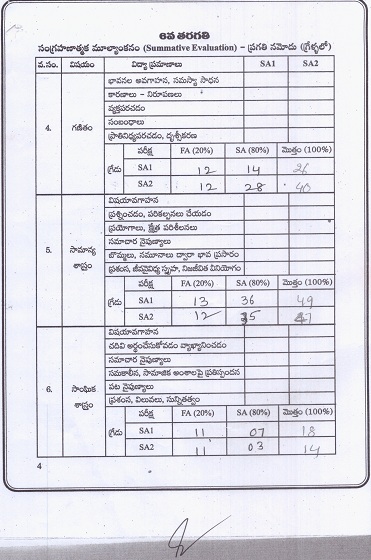 6వ తరగతి
సంగ్రహణాత్మక మూల్యాంకనం (Summative Evaluation) – ప్రగతి నమోదు (గ్రేళ్ళలో)
వ.సం. విషయం విద్యా ప్రమాణాలు SA1 SA2
4. గణితం
భావనల అవగాహన, సమస్యా సాధన
కారణాలు – నిరూపణలు
వ్యక్తపరచడం
సంబంధాలు
ప్రాతినిధ్యపరచడం, దృశ్యీకరణ
గ్రేడు పరీక్ష FA (20%) SA (80%) మొత్తం (100%)
SA1 12 14 26
SA2 12 28 40
5. సామాన్య శాస్త్రం
విషయావగాహన
ప్రశ్నించడం, పరికల్పనలు చేయడం
ప్రయోగాలు, క్షేత్ర పరిశీలనలు
సమాచార నైపుణ్యాలు
బొమ్మలు, నమూనాలు ద్వారా భావ ప్రసారం
ప్రశంస, జీవవైవిధ్య స్పృహ, నిజజీవిత వినియోగం
గ్రేడు పరీక్ష FA (20%) SA (80%) మొత్తం (100%)
SA1 13 36 49
SA2 12 35 47
6. సాంఘిక శాస్త్రం
విషయావగాహన
చదివి అర్థంచేసుకోవడం వ్యాఖ్యానించడం
సమాచార నైపుణ్యాలు
సమకాలీన, సామాజిక అంశాలపై ప్రతిస్పందన
పట నైపుణ్యాలు
ప్రశంస, విలువలు, సున్నితత్వం
గ్రేడు పరీక్ష FA (20%) SA (80%) మొత్తం (100%)
SA1 11 07 18
SA2 11 03 14
4